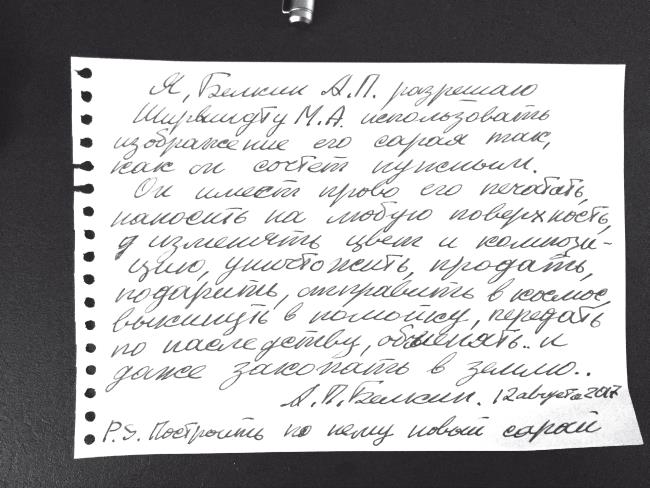 Я, Белкин А.П. разрешаю
Ширвиндту М.А. использовать
изображение его сарая так,
как он сочтет нужным.
Он имеет право его печатать,
наносить на любую поверхность,
изменять цвет и компози-
цию, уничтожить, продать,
подарить, отправить в космос,
выкинуть в помойку, передать
по наследству, обменять.. и
даже закопать в землю..
А.П.Белкин. 12 августа 2017
P.S. Построить по нему новый сарай